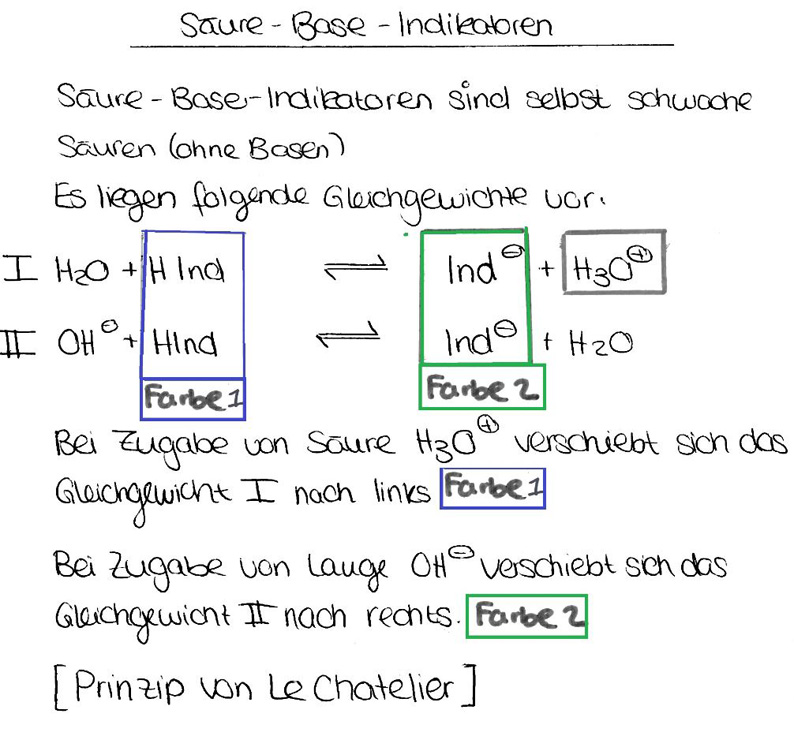 Säure-Base-Indikatoren
Säure-Base-Indikatoren sind selbst schwache
Säuren (ohne Basen)
Es liegen folgende Gleichgewichte vor.
I H₂O + H Ind ⇌ Ind⊖ + H₃O⊕
II OH⊖ + HInd ⇌ Ind⊖ + H₂O
Farbe 1 Farbe 2
Bei Zugabe von Säure H₃O⊕ verschiebt sich das
Gleichgewicht I nach links Farbe 1
Bei Zugabe von Lauge OH⊖ verschiebt sich das
Gleichgewicht II nach rechts. Farbe 2
[Prinzip von Le Chatelier]